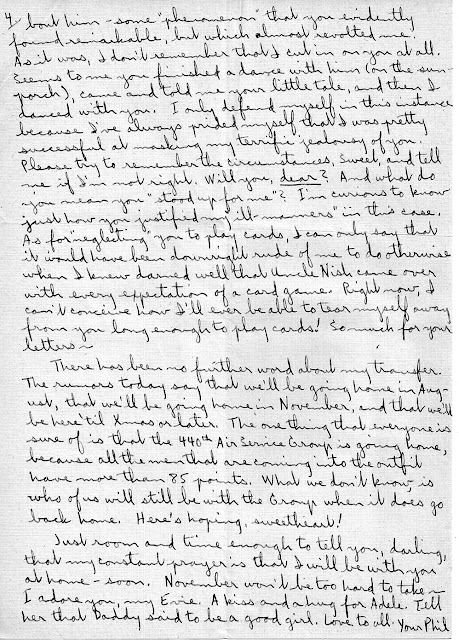 4. bout him - some "phenomenon" that you evidently
found remarkable, but which almost revolted me!
As it was, I don't remember that I cut in on you at all.
Seems to me you finished a dance with him (on the sun-
porch), came and told me your little tale, and then I
danced with you. I only defend myself in this instance
because I've always prided myself that I was pretty
successful at masking my terrific jealousy of you.
Please try to remember the circumstances, Sweet, and tell
me if I'm not right. Will you, dear? And what do
you mean you "stood up for me"? I'm curious to know
just how you justified my "ill-manners" in this case.
As for "neglecting" you to play cards, I can only say that
it would have been downright rude of me to do otherwise
when I knew darned well that Uncle Nish came over
with every expectation of a card game. Right now, I
can't conceive how I'll ever be able to tear myself away
from you long enough to play cards! So much for your
letters -
There has been no further word about my transfer.
The rumors today say that we'll be going home in Aug-
ust, that we'll be going home in November, and that we'll
be here 'til Xmas or later. The one thing that everyone is
sure of is that the 440th Air Service Group is going home,
because all the men that are coming into the outfit
have more than 85 points. What we don't know, is
who of us will still be with the Group when it does go
back home. Here's hoping, sweetheart!
Just room and time enough to tell you, darling,
that my constant prayer is that I will be with you
at home - soon. November won't be too hard to take -
I adore you, my Evie. A kiss and a hug for Adele. Tell
her that Daddy said to be a good girl. Love to all. Your Phil